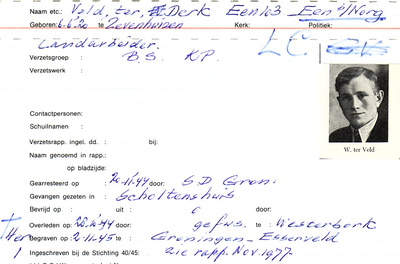 Naam etc.: Veld, ter, Derk Een 103 Een g/Norg
Geboren: 6-6-'20 te Zevenhuizen Kerk: Politiek:
Landarbeider. LC
Verzetsgroep : B.S. K.P.
Verzetswerk :
Contactpersonen:
Schuilnamen :
Verzetsrapp. ingel. dd. : bij:
Naam genoemd in rapp:
op bladzijde:
W. ter Veld
Gearresteerd op : 20-11-44 door: S.D Gron.
Gevangen gezeten in : Scholtenshuis
Bevrijd op : uit : door:
Overleden op : gefus. te Westerbork
Her Begraven op : 2-11-45 te : Groningen - Esserveld
Ingeschreven bij de Stichting 40/45: zie rapp. Nov. 1977.